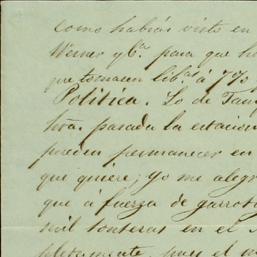 como habrás visto en
Werner y Cª. para que h
que tomasen lib.ˢ á 7%
Politica. Lo de Tam
tra. pasada la estacion
pueden permanecer en
qué quiere; yo me alegr
que á fuerza de garrota
mil tonteras en el
pletamente, pues el m